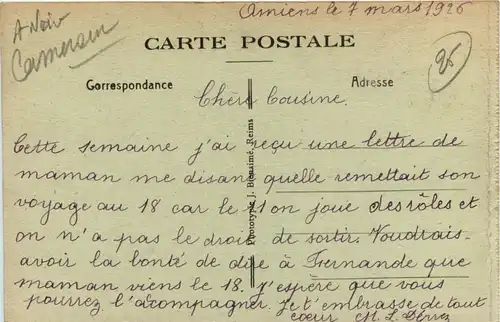 Amiens le 7 mars 1926
A Noir
Cameroun
25
CARTE POSTALE
Correspondance
Adresse
Phototypie J. Bienaimé, Reims
Chère Cousine.
Cette semaine j'ai reçu une lettre de
maman me disan quelle remettait son
voyage au 18 car le 11 on joue des rôles et
on n'a pas le droit de sortir. Voudrais-
avoir la bonté de dire à Fernande que
maman viens le 18. j'espère que vous
pourrez l'acompagner. je t'embrasse de tout
coeur M. L.